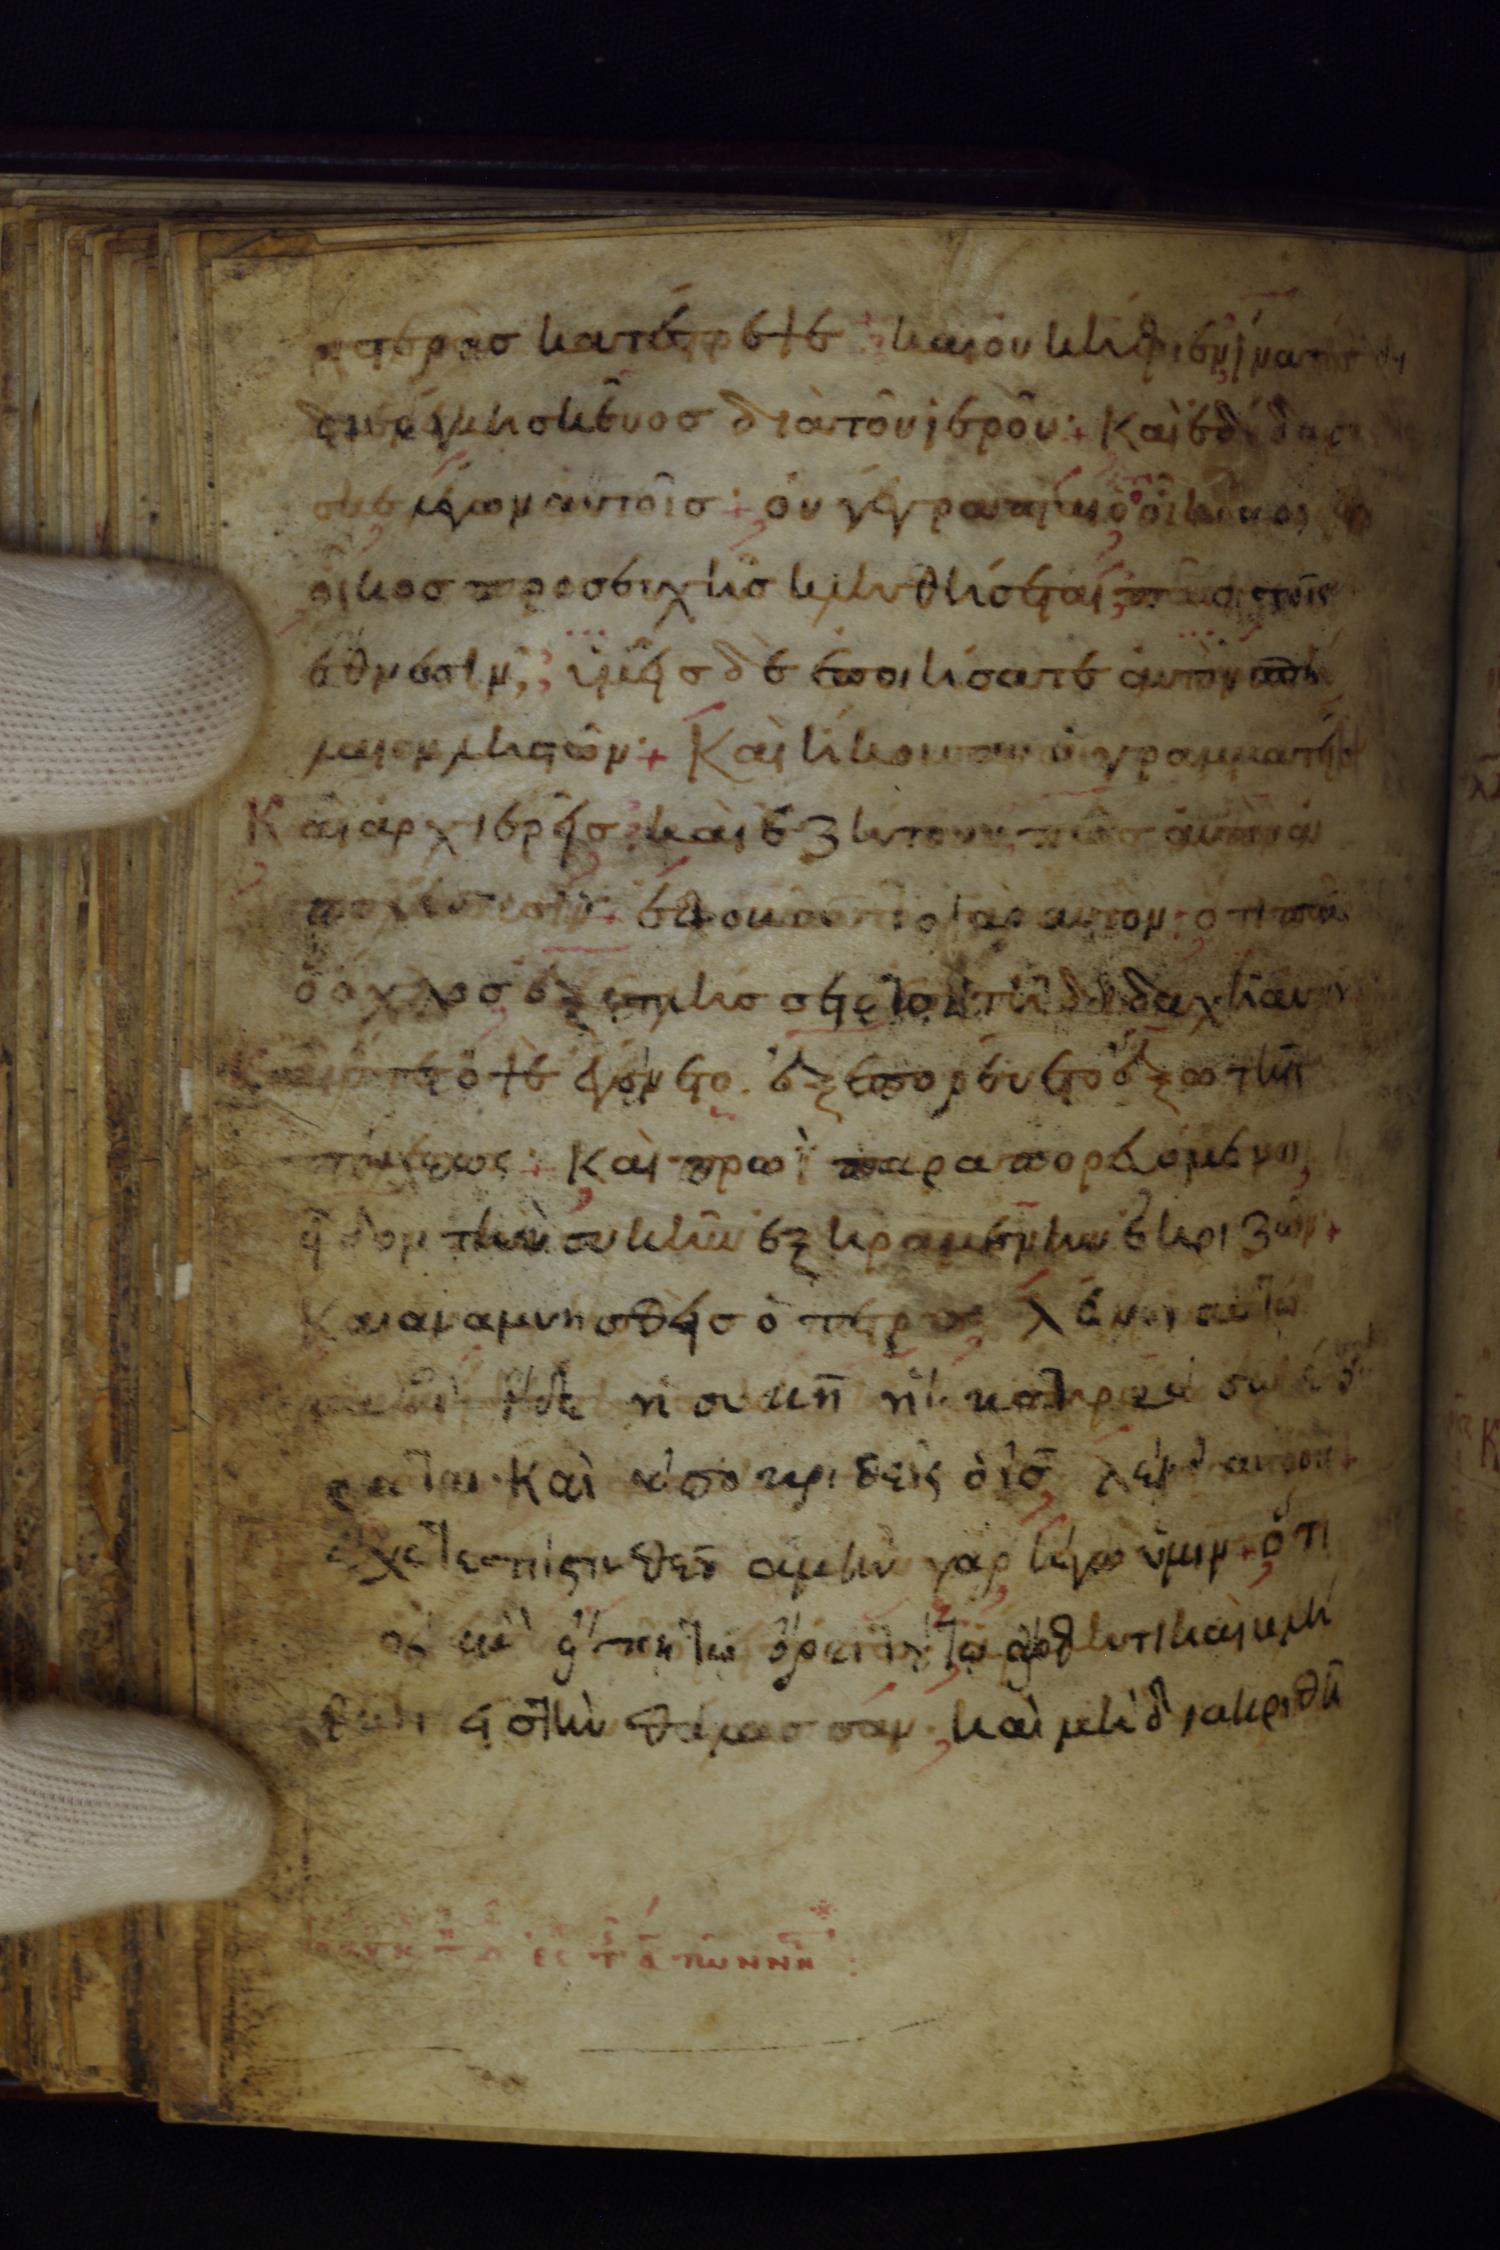 περὰσ κατέστρεψε : καὶ οὐκ ἤφιεν ἵνα τὶς δι
ενέγκη σκεῦοσ διὰ τοῦ ἱεροῦ:+ Καὶ ἐδίδασ
κε λέγων αὐτοῖσ :+ οὐ γέγραπται ὅτι ὁ οἶκος μου
οἶκοσ προσευχῆσ κληθήσεται πᾶσι τοῖς
ἔθνεσιν; ὑμεῖσ δὲ ἐποιήσατε αὐτὸν σπή
λαιον ληστῶν:+ Καὶ ἤκουσαν οἱ γραμματεῖσ
Καὶ ἀρχιερεῖσ καὶ ἐζήτουν πῶσ αὐτὸν ἀ
πολέσουσιν:+ ἐφοβοῦντο γὰρ αὐτον· ὅτι πᾶσ
ὁ ὄχλοσ ἐξεπλήσσετο ἐπὶ τῆ διδαχῆ αὐτοῦ
Καὶ ὅτε ὀψὲ ἐγένετο. ἐξεπορεύετο ἔξω τῆς
πόλεως:+ Καὶ πρωῒ παραπορευόμενοι
εἶδον τὴν συκῆν ἐξηραμένην ἐκ ριζῶν:+
Καὶ ἀναμνησθεὶσ ὁ πέτρος λέγει αὐτῶ
ραββὶ ἴδε ἡ συκῆ ἣν κατηράσω ἐξή
ραται· Καὶ ἀποκριθεὶς ὁ ις λέγει αὐτοῖς+
ἔχετε πίστιν θεοῦ ἀμὴν γὰρ λέγω ὑμῖν+ ὅτι
ὃς ἂν εἴπη τῶ ὄρει τούτω ἄρθητι καὶ βλή
θητι εἰσ τὴν θάλασσαν, καὶ μὴ διακριθῆ